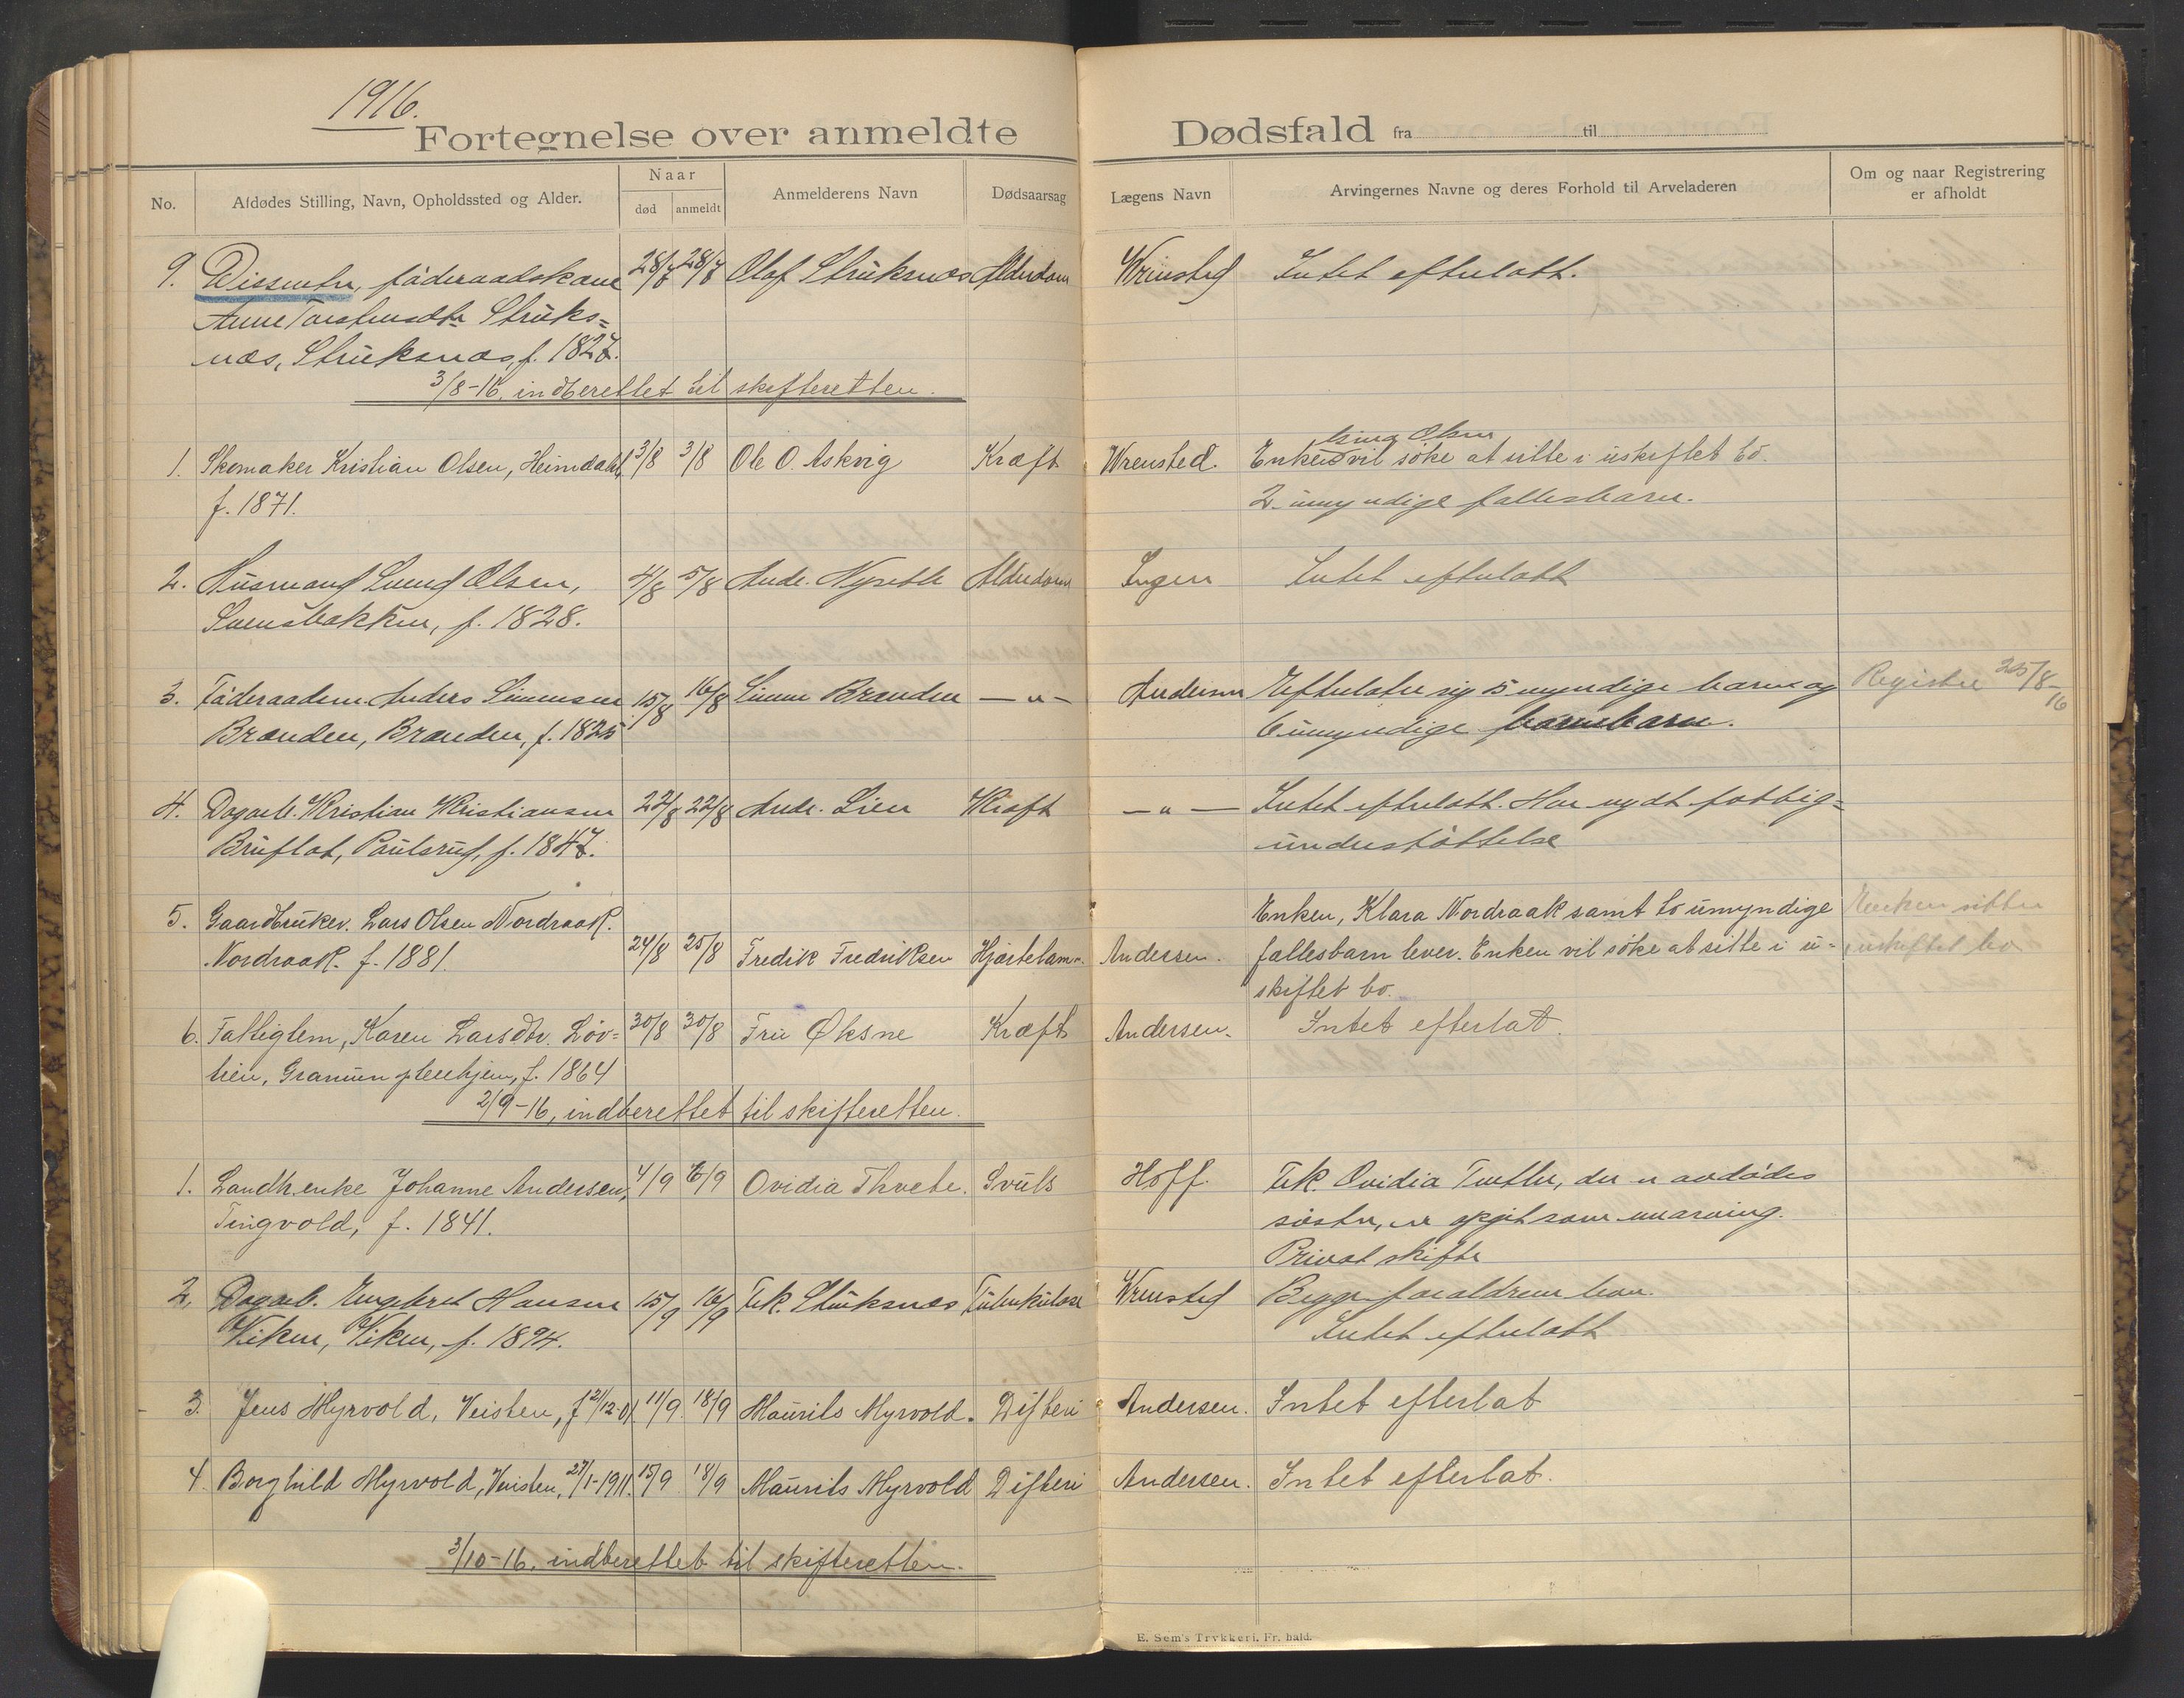 1916.
Fortegnelse over anmeldte Dødsfald fra til
No. Afdødes Stilling, Navn, Opholdssted og Alder. Naar død anmeldt Anmelderens Navn Dødsaarsag Lægens Navn Arvingernes Navne og deres Forhold til Arveladeren Om og naar Registrering er afholdt
9. Dissenter, föderaadskone 28/7 28/7 Olaf Strüksnæs Alderdom Wrensted Intet efterlatt.
Anne Torstensdtr Strüks=
næs, Strüksnæs, f. 1827.
3/8-16, indberettet til skifteretten.
1. Skomaker Kristian Olsen, Heimdahl, 3/8 3/8 Ole O. Askvig Kræft Wrensted. Enken vil söke at sitte i uskiftet bo.
Olsen
f. 1871. 2 umyndige fællesbarn.
2. Husmand Svend Olsen, 4/8 5/8 Andr. Nyseth Alderdom Ingen Intet efterlatt
Svensbakken, f. 1828.
3. Föderaadsm. Anders Simensen 15/8 16/8 Simen Brænden -"- Andersen Efterlater sig 5 myndige barn og Registr. 25/8-16
Brænden, Brænden, f. 1825 6 umyndige barnebarn.
4. Dagarb. Kristian Kristiansen 22/8 22/8 Andr. Lien Kræft -"- Intet efterlatt. Har nydt fattig=
Bruflat, Paulsrud, f. 1847. understöttelse
5. Gaardbruker Lars Olsen Nordraak. Enken, Klara Nordraak samt to umyndige Enken sitter
Nordraak. f. 1881. 24/8 25/8 Fredik Fredriksen Hjertelam. Andersen. fællesbarn lever. Enken vil söke at sitte i u- i uskiftet bo
skiftet bo.
6. Fattiglem, Karen Larsdtr. Löv= 30/8 30/8 Fru Øksne Kræft Andersen. Intet efterlat.
lien, Granum pleiehjem, f. 1864
2/9-16, indberettet til skifteretten.
1. Landh.enke Johanne Andersen, 4/9 6/9 Ovidia Thvete. Svuls Hoff. Frk. Ovidia Tvethe, der er avdödes
Tingvold, f. 1841. söster, er opgit som enearving.
Privat skifte
2. Dagarb. Engebret Hansen 15/9 16/9 Frk. Strüksnæs Tuberkulose Wrensted Begge forældrene lever.
Viken, Viken, f. 1894. Intet efterlatt
3. Jens Myrvold, Veisten, f 21/12-01. 11/9 18/9 Maurits Myrvold. Difteri Andersen. Intet efterlat
4. Borghild Myrvold, Veisten, 27/1-1911. 15/9 18/9 Maurits Myrvold Difteri Andersen. Intet efterlat.
3/10-16, indberettet til skifteretten.
E. Sem's Trykkeri, Fr. hald.